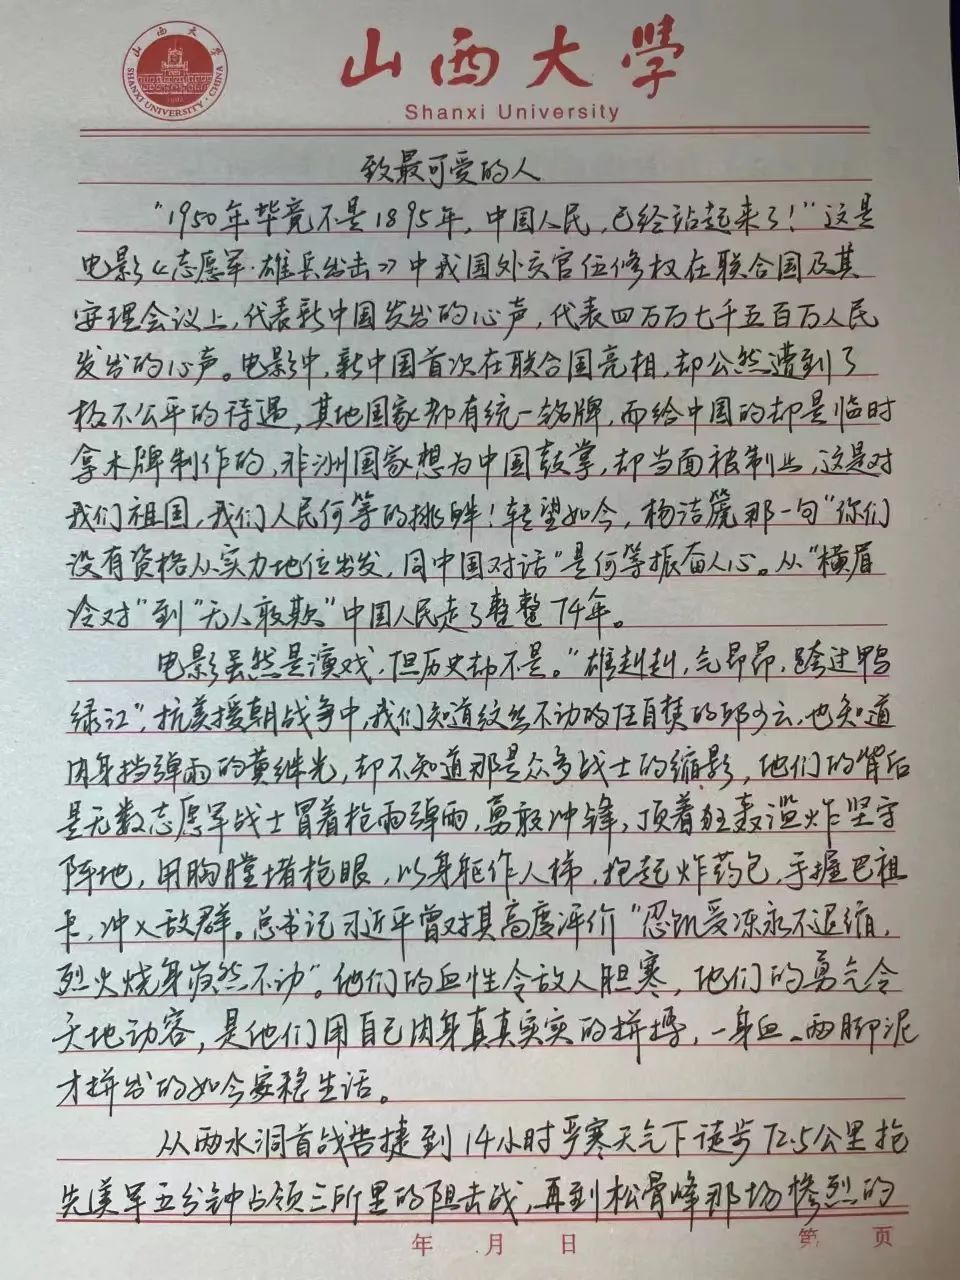 山西大学
SHANXI UNIVERSITY · CHINA
山西大学
1902
Shanxi University
致最可爱的人
“1950年毕竟不是1895年，中国人民，已经站起来了！”这是
电影《志愿军·雄兵出击》中我国外交官伍修权在联合国及其
安理会议上，代表新中国发出的心声，代表四万万七千五百万人民
发出的心声。电影中，新中国首次在联合国亮相，却公然遭到了
极不公平的待遇，其他国家都有统一铭牌，而给中国的却是临时
拿木牌制作的，非洲国家想为中国鼓掌，却当面被制止，这是对
我们祖国，我们人民何等的挑衅！轻望如今，杨洁篪那一句“你们
没有资格从实力地位出发，同中国对话”是何等振奋人心。从“横眉
冷对”到“无人敢欺”中国人民走了整整74年。
电影虽然是演戏，但历史却不是。“雄赳赳，气昂昂，跨过鸭
绿江”，抗美援朝战争中，我们知道纹丝不动的任自焚的邱少云，也知道
肉身挡弹雨的黄继光，却不知道那是众多战士的缩影，他们的背后
是无数志愿军战士冒着枪雨弹雨，勇敢冲锋，顶着狂轰滥炸坚守
阵地，用胸膛堵枪眼，以身躯作人梯，抱起炸药包，手握巴祖
卡，冲入敌群。总书记习近平曾对其高度评价“忍饥受冻永不退缩，
烈火烧身岿然不动”。他们的血性令敌人胆寒，他们的勇气令
天地动容，是他们用自己肉身真真实实的拼搏，一身血、两脚泥
才拼出的如今安稳生活。
从两水洞首战告捷到14小时严寒天气下徒步72.5公里抢
先美军五分钟占领三所里的阻击战，再到松骨峰那场惨烈的
年 月 日
第 页